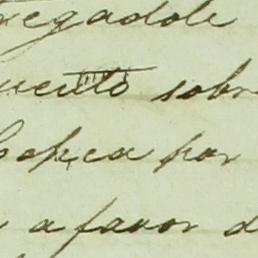 regadole
uento sobre
Copca por
a favor d